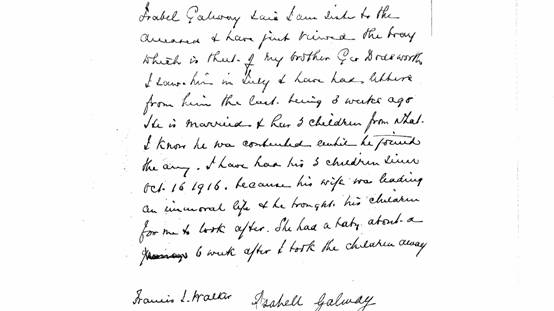 Isabel Galway said I am sister to the
deceased & have just viewed the body
which is that of my brother Geo Dodsworth
I saw him in July & have had letters
from him the last being 3 weeks ago
He is married & has 3 children from what
I know he was contented until he joined
the army. I have had his 3 children since
Oct. 16 1916. because his wife was leading
an immoral life & he brought his children
for me to look after. She had a baby about a
6 week after I took the children away
Francis L. Walker Isabell Galway